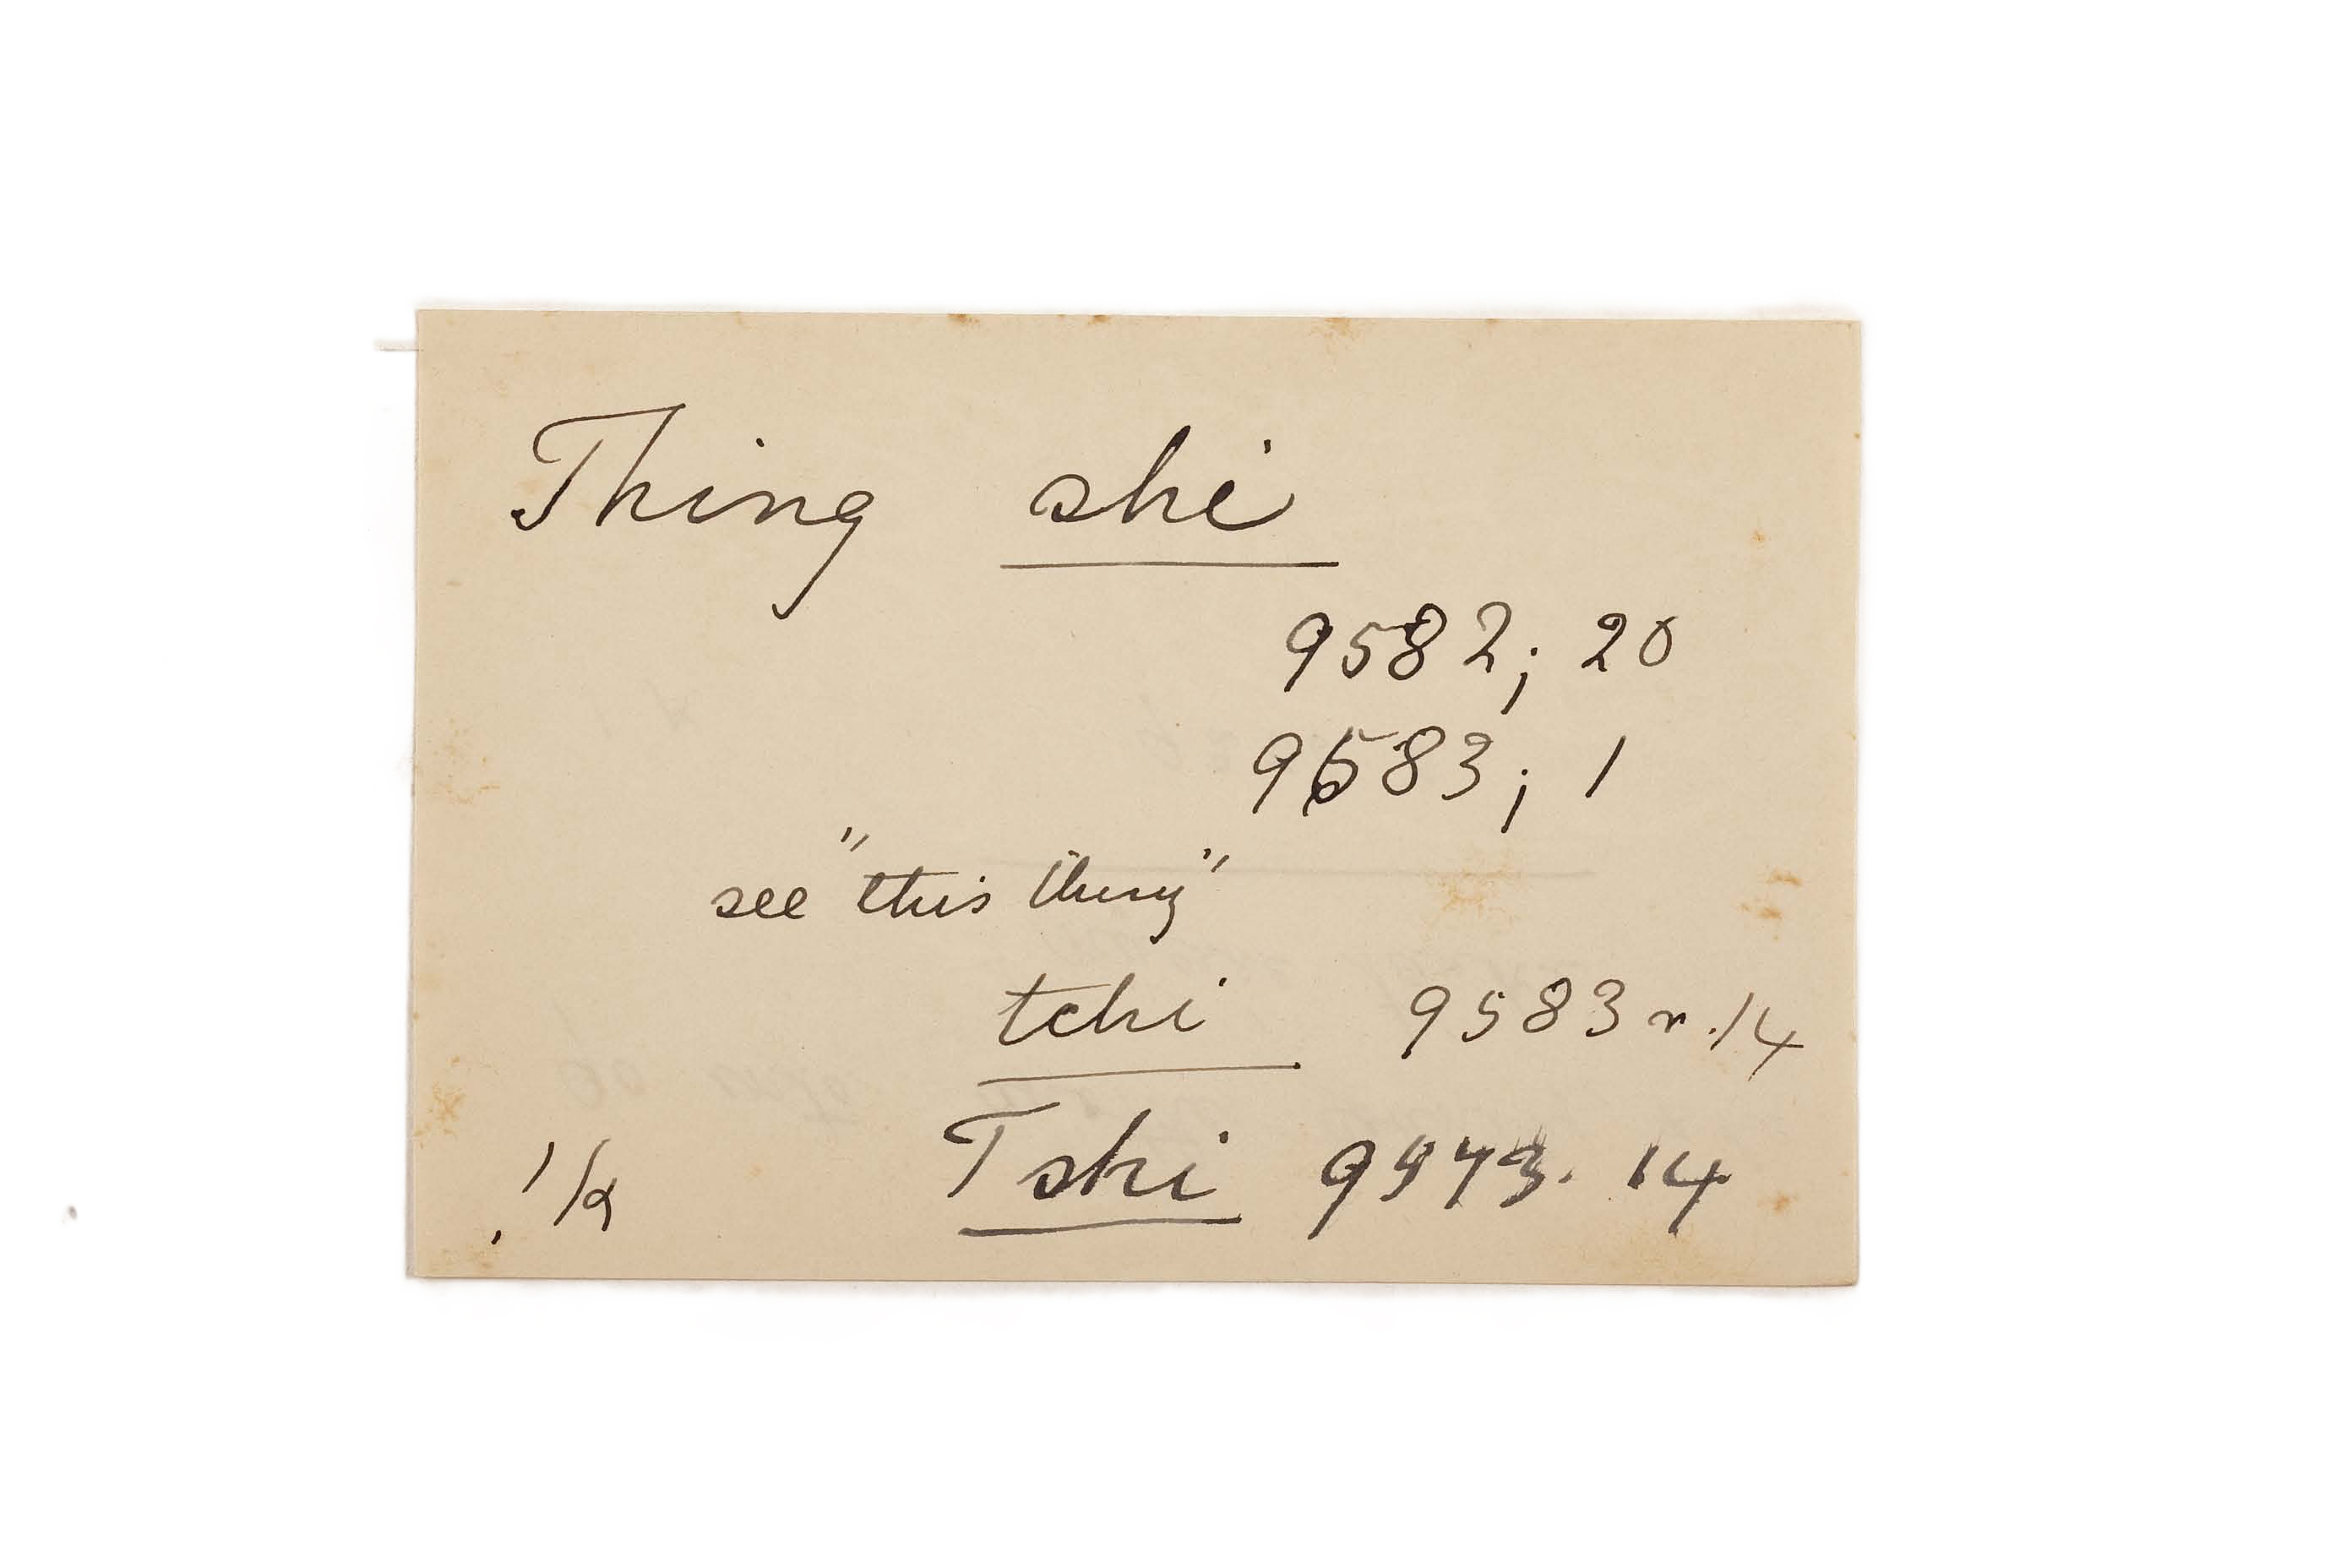 Thing shi
9582; 20
9583; 1
see "this thing"
tchi 9583 r. 14
Tshi 9573. 14